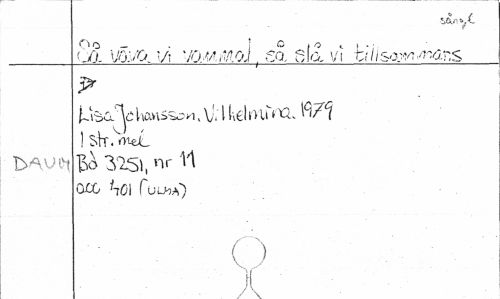 sångl
Så väva vi vammal, så slå vi tillsammans
Lisa Johansson, Vilhelmina, 1979
1 str. mel
DAUM Bd 3251, nr 11
acc 401 (ULMA)